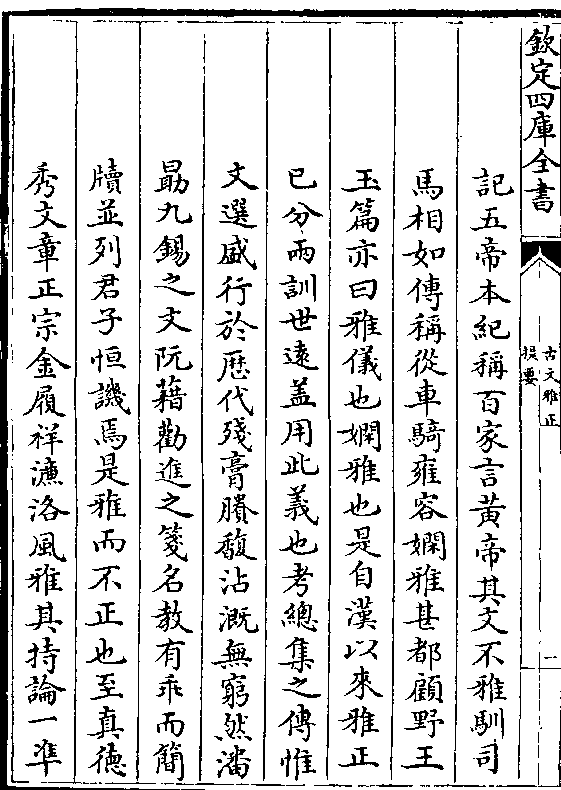 欽定四庫全書
古文雅正
提要
一
記五帝本紀稱百家言黄帝其文不雅馴司
馬相如傳稱從車騎雍容嫻雅甚都顧野王
玉篇亦曰雅儀也嫻雅也是自漢以來雅正
已分兩訓世逺盖用此義也考總集之傳惟
文選盛行於歴代殘膏賸馥沾溉無窮然潘
朂九錫之文阮藉勸進之箋名教有乖而簡
牘並列君子恒譏焉是雅而不正也至真徳
秀文章正宗金履祥濂洛風雅其持論一凖